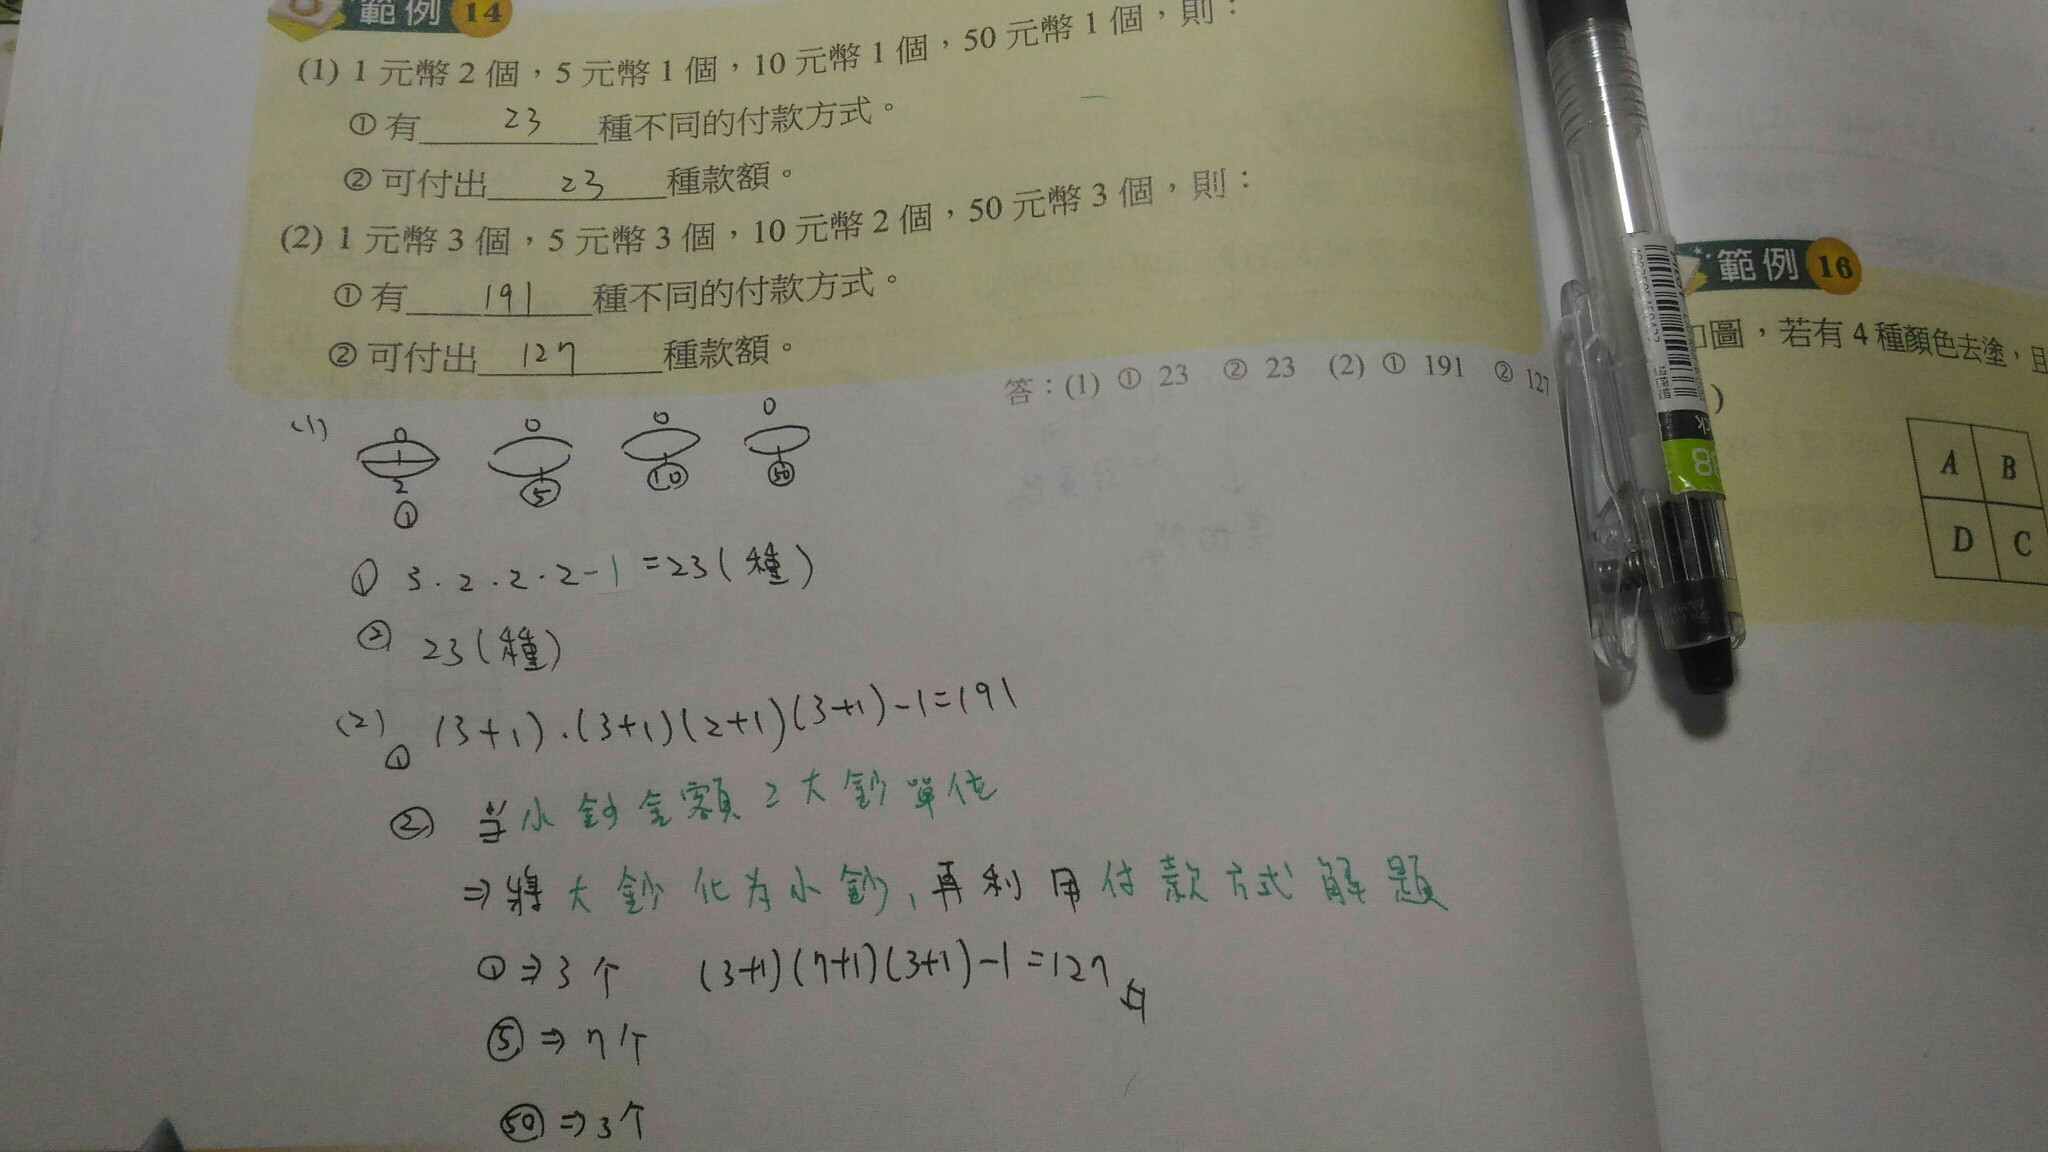 範例 14
(1) 1 元幣 2 個，5 元幣 1 個，10 元幣 1 個，50 元幣 1 個，則：
① 有 23 種不同的付款方式。
② 可付出 23 種款額。
(2) 1 元幣 3 個，5 元幣 3 個，10 元幣 2 個，50 元幣 3 個，則：
① 有 191 種不同的付款方式。
② 可付出 127 種款額。
答：(1) ① 23 ② 23 (2) ① 191 ② 127
(1) 0 0 0 0
1
2 ⑤ ⑩ ㊿
①
① 3．2．2．2－1＝23(種)
② 23(種)
(2) ① (3+1)．(3+1)(2+1)(3+1)－1＝191
② 當小鈔金額≥大鈔單位
⇒將大鈔化为小鈔，再利用付款方式解題
①⇒3个 (3+1)(7+1)(3+1)－1＝127
⑤⇒7个
㊿⇒3个
範例 16
圖，若有 4 種顏色去塗，且
)
A B
D C
88